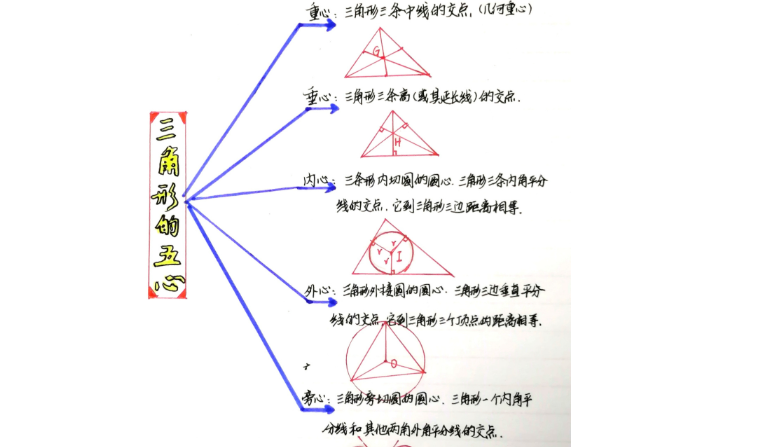 三角形的五心
重心：三角形三条中线的交点，（几何重心）
G
垂心：三角形三条高（或其延长线）的交点．
H
内心：三条形内切圆的圆心．三角形三条内角平分
线的交点．它到三角形三边距离相等．
r r
r I
外心：三角形外接圆的圆心．三角形三边垂直平分
线的交点，它到三角形三个顶点的距离相等．
O
旁心：三角形旁切圆的圆心．三角形一个内角平
分线和其他两角外角平分线的交点．